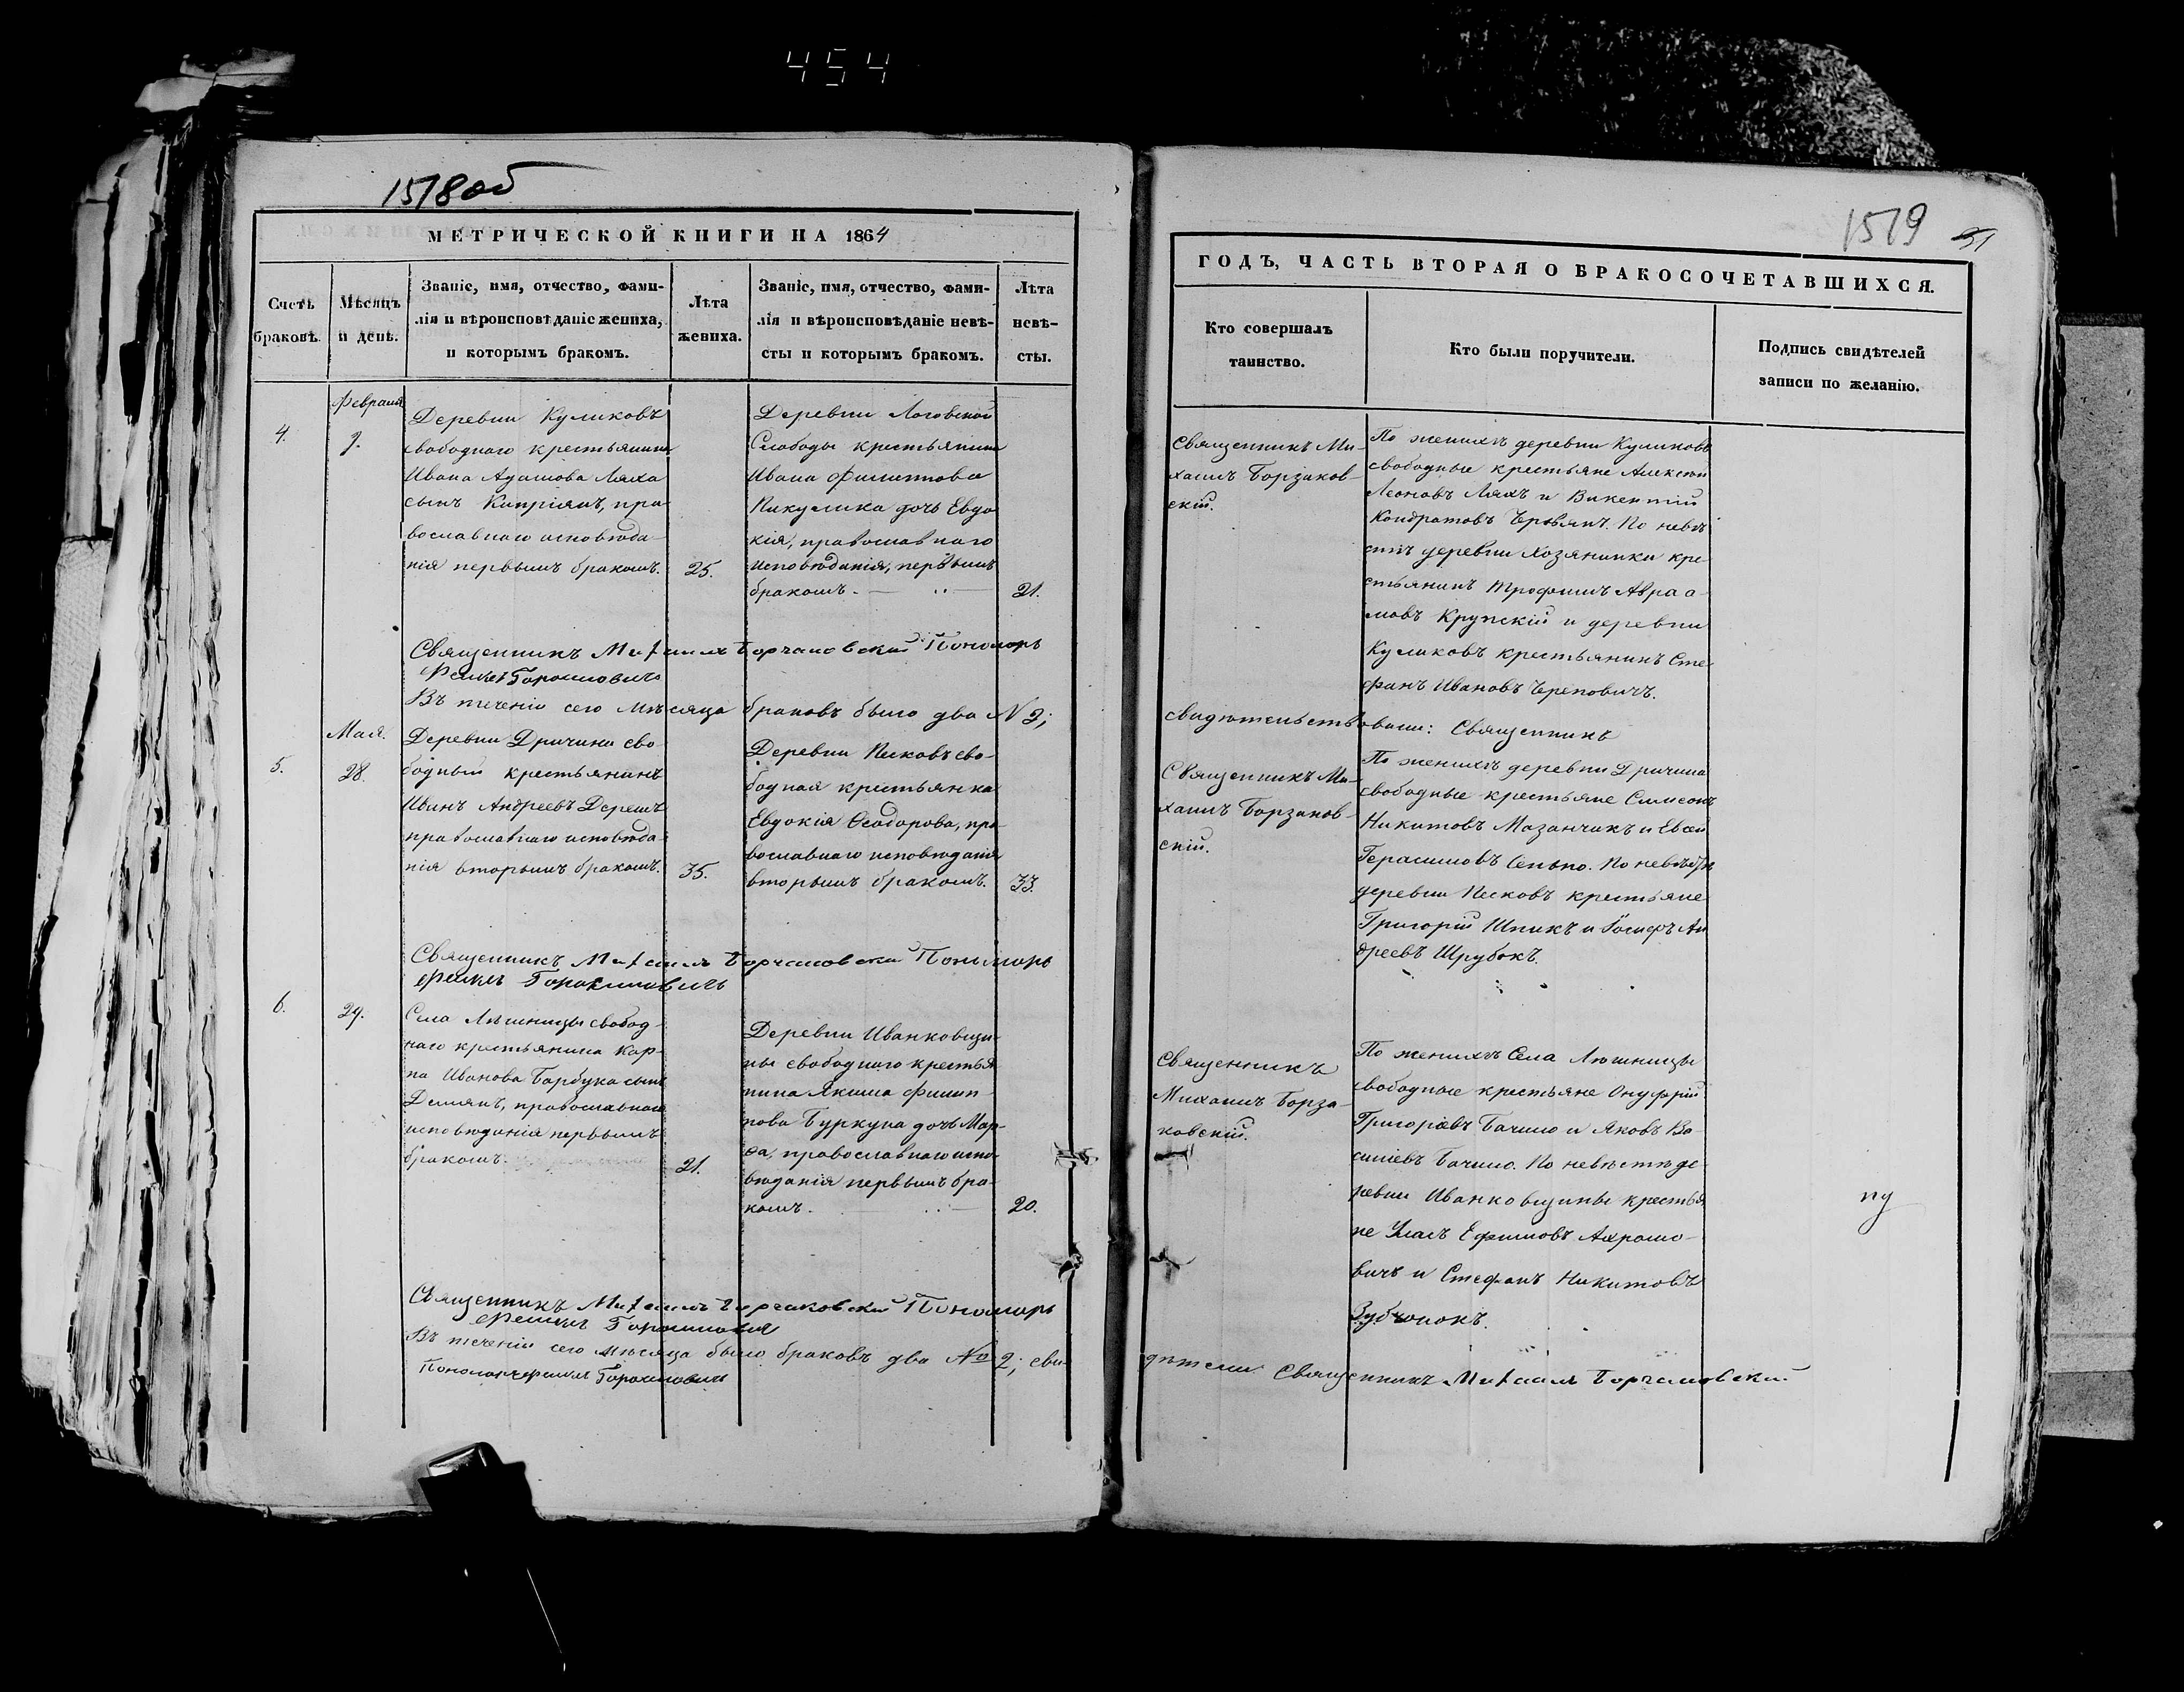 454
1518об
МЕТРИЧЕСКОЙ КНИГИ НА 1864
Счетъ браковъ.
Мѣсяцъ и день.
Званіе, имя, отчество, фами-
лія и вѣроисповѣданіе жениха,
и которымъ бракомъ.
Лѣта
жениха.
Званіе, имя, отчество, фами-
лія и вѣроисповѣданіе невѣ-
сты и которымъ бракомъ.
Лѣта
невѣ-
сты.
Февраля
4.
Деревни Куликовъ
свободнаго крестьянина
Ивана Адамова Ляха
сынъ Кипріянъ, пра-
вославнаго исповѣда-
нія первымъ бракомъ.
25.
Деревни Логовской
Слободы крестьянина
Ивана Филиппова
Пикулика дочь Евдо
кія, православнаго
исповѣданія, первымъ
бракомъ.
21.
Священникъ Михаилъ Борзаковскій Пономарь
Въ теченіи сего мѣсяца браковъ было два №2;
Мая.
5.
28.
Деревни Дричина сво-
бодный крестьянинъ
Иванъ Андреевъ Дерешъ
православнаго исповѣда-
нія вторымъ бракомъ.
35.
Деревни Песковъ сво-
бодная крестьянка
Евдокія Ѳеодорова, пра-
вославнаго исповѣданія
вторымъ бракомъ.
33.
Священникъ Михаилъ Борзаковскій Пономарь
6.
29.
Села Люшницы свобод-
наго крестьянина Кар-
па Иванова Барбука сынъ
Демянъ, православнаго
исповѣданія первымъ
бракомъ.
21.
Деревни Иванковщи-
ны свободнаго крестья
нина Якима Филип-
пова Буркуна дочь Мар-
ѳа, православнаго испо-
вѣданія первымъ бра-
комъ.
20.
Священникъ Михаилъ Борзаковскій Пономарь
Въ теченіи сего мѣсяца было браковъ два № 2; сви-
1519
31
ГОДЪ, ЧАСТЬ ВТОРАЯ О БРАКОСОЧЕТАВШИХСЯ.
Кто совершалъ
таинство.
Кто были поручители.
Подпись свидѣтелей
записи по желанію.
Священникъ Ми-
хаилъ Борзаков-
скій.
По женихѣ деревни Куликовъ
свободные крестьяне Алексѣй
Леоновъ Ляхъ и Викентій
Кондратовъ По невѣ
стѣ деревни Хозянинки кре
стьянинъ Трофимъ Авраа-
мовъ Крупскій и деревни
Куликовъ крестьянинъ Сте
фанъ Ивановъ Черповичъ.
свидѣтельствовали: Священникъ
Священникъ Ми-
хаилъ Борзаков-
скій.
По женихѣ деревни Дричина
свободные крестьяне Симеонъ
Никитовъ Мазанчикъ и Евсей
Герасимовъ Сенько. По невѣстѣ
деревни Песковъ крестьяне
Григорій Шпикъ и Іосифъ Ан
дреевъ Шрубокъ.
Священникъ
Михаилъ Борза-
ковскій.
По женихѣ Села Люшницы
свободные крестьяне Онуфрій
Григоріевъ Бачило и Яковъ Ва-
силіевъ Бачило. По невѣстѣ де-
ревни Иванковщины крестья
не Уласъ Ефимовъ Ахрамо-
вичъ и Стефанъ Никитовъ
Зубчонокъ.
дѣтели Священникъ Михаилъ Борзаковскій